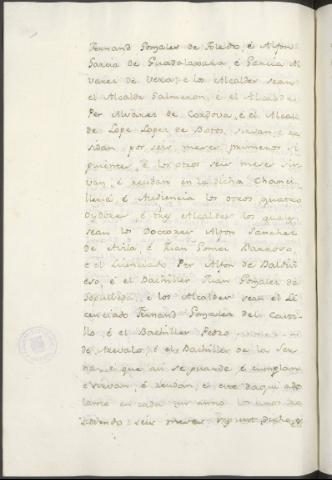 Fernand Gonzalez de Toledo, é Alfon
Garcia de Guadalaxara é Garcia Al
varez de Vera: é los Alcaldes sean
el Alcalde Salmeron, é el Alcalde
Per Alvarez de Cordova, é el Alcal
de Lope Lopez de Botos, sirvan, é re
sidan por seis meses primeros si
guientes, é los otros seis meses sir
van, é residan en la dicha Chanci
lleria é Audiencia los otros quatro
Oydores, é tres Alcaldes los quales
sean los Doctores Alfon Sanchez
de Avila é Juan Gomez
é el Licenciado Per Alfon de Valdivi
eso, é el Bachiller Juan Gonzalez de
é los Alcaldes sean el Li
cenciado Fernand Gonzalez del Casti
llo é el Bachiller Pedro
de Arevalo é el Bachiller de la Ser
na é que asi se guarde é cumplan
é sirvan, é residan, é de aqui ade
lante en cada un anno los unos
seis meses